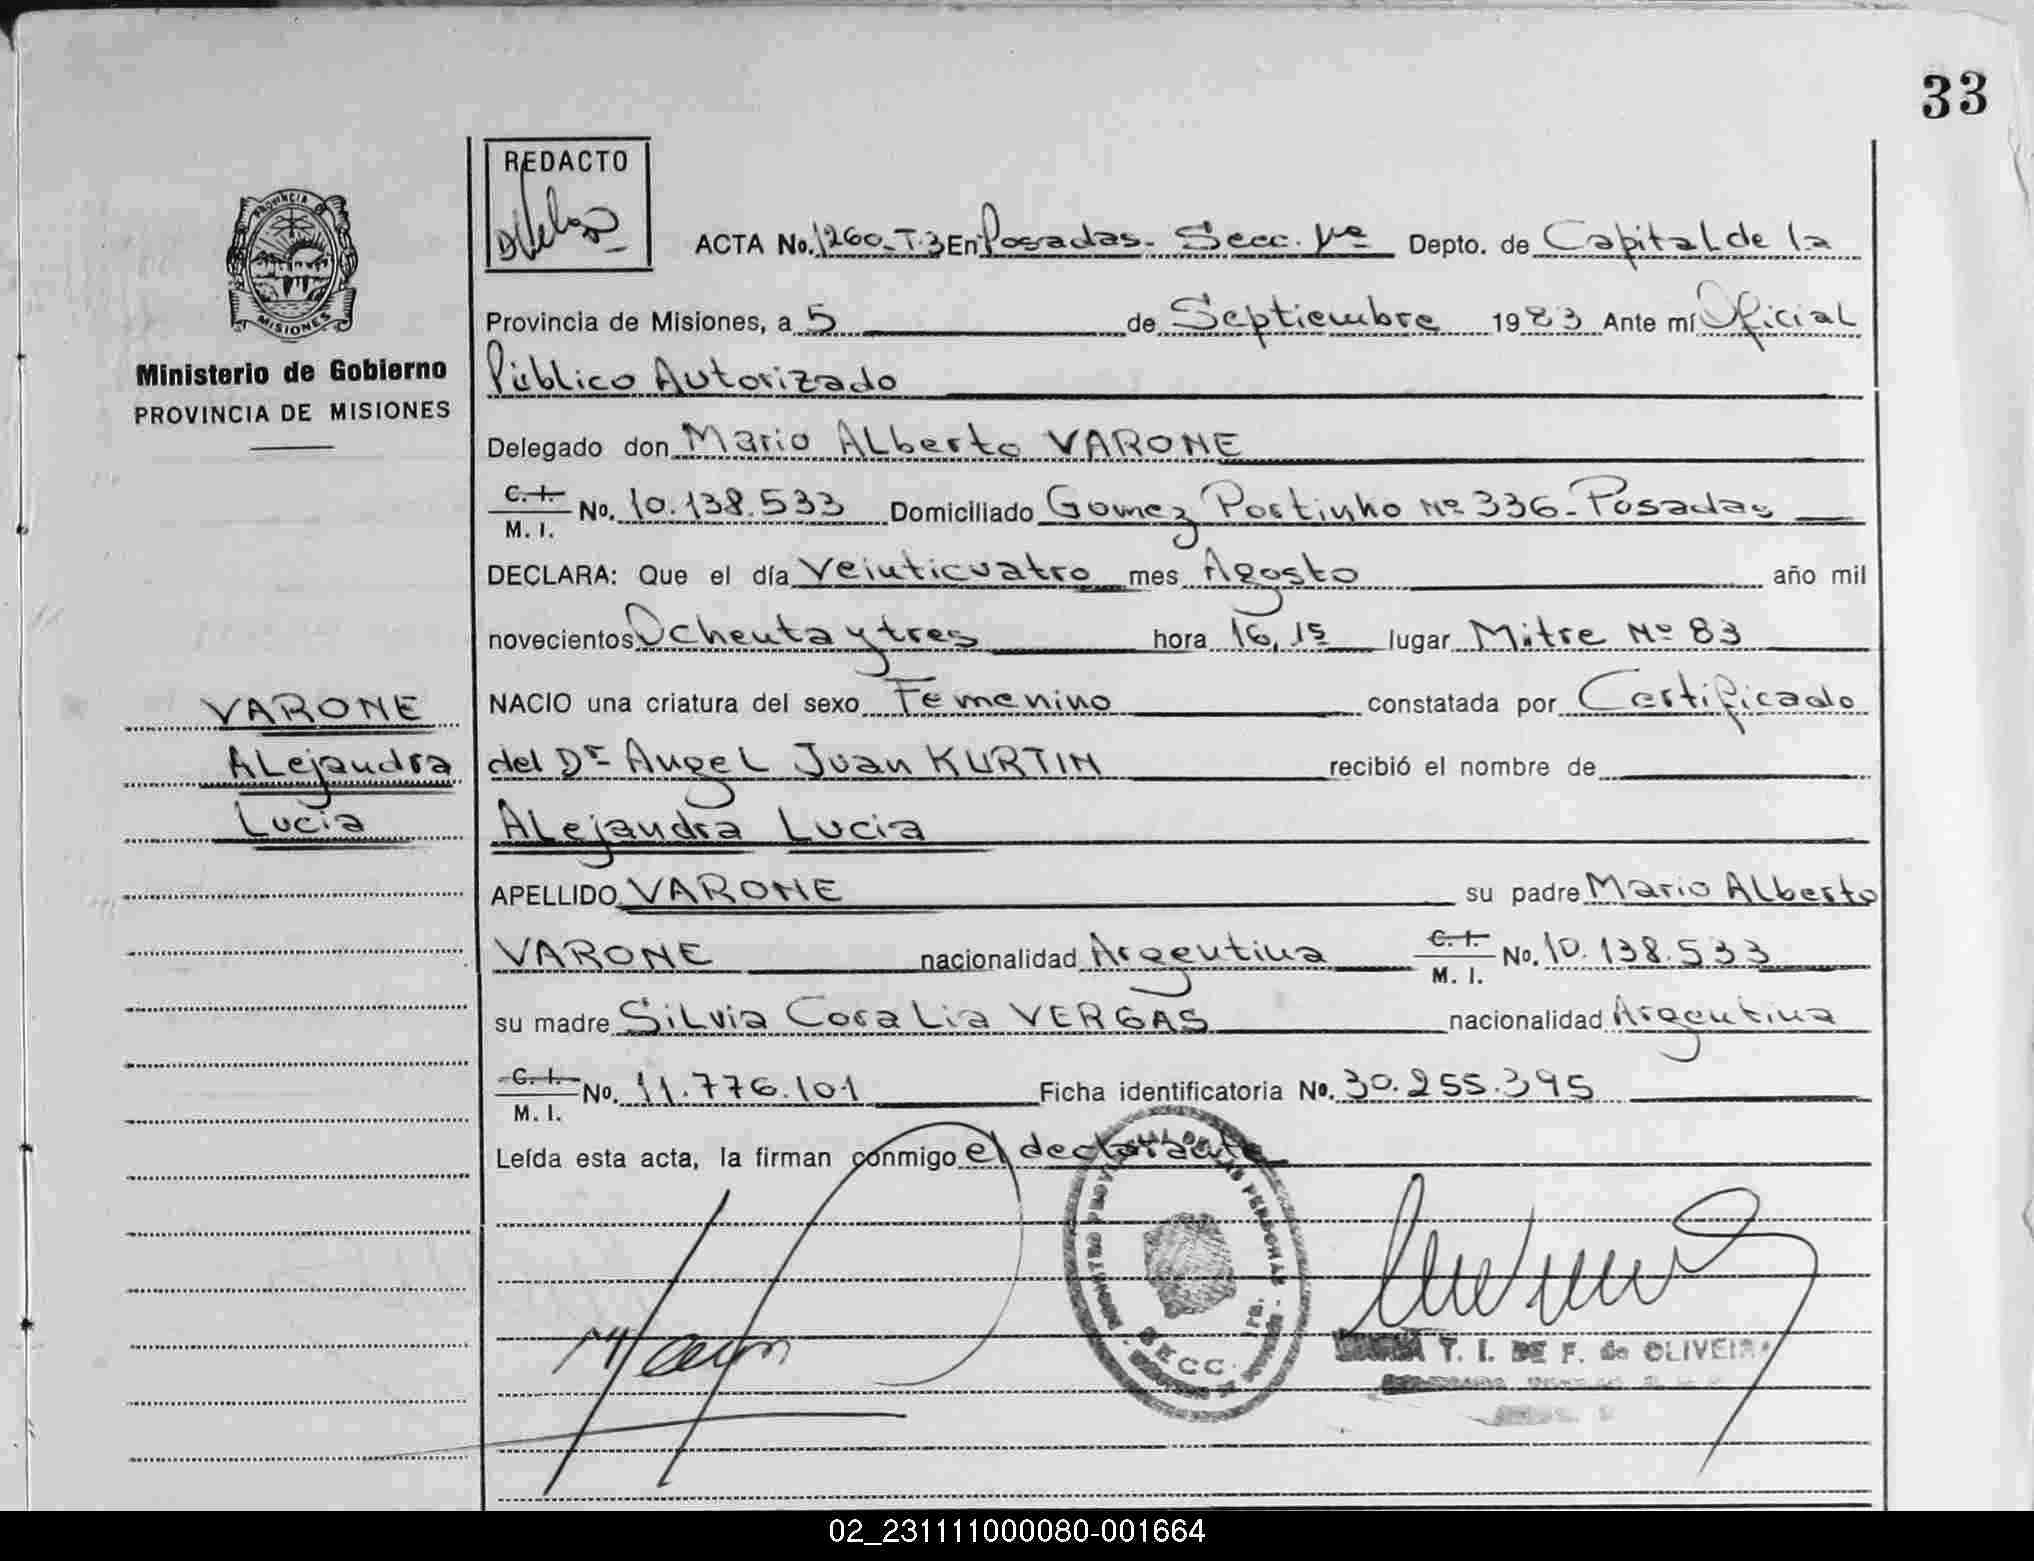 33
REDACTO
PROVINCIA DE
MISIONES
Ministerio de Gobierno
PROVINCIA DE MISIONES
ACTA No. 1260-T.3 En Posadas. Secc. 1ra Depto. de Capital de la
Provincia de Misiones, a 5 de Septiembre 1983 Ante mí Oficial
Público Autorizado
Delegado don Mario Alberto VARONE
C. I. M. I. No. 10.138.533 Domiciliado Gomez Portinho Nº 336- Posadas
DECLARA: Que el día Veinticuatro mes Agosto año mil
novecientos Ochenta y tres hora 16,15 lugar Mitre Nº 83
VARONE
Alejandra
Lucia
NACIO una criatura del sexo Femenino constatada por Certificado
del Dr Angel Juan KURTIN recibió el nombre de
Alejandra Lucia
APELLIDO VARONE su padre Mario Alberto
VARONE nacionalidad Argentina C. I. M. I. No. 10.138.533
su madre Silvia Coralia VERGAS nacionalidad Argentina
C. I. M. I. No. 11.776.101 Ficha identificatoria No. 30.255.395
Leída esta acta, la firman conmigo el declarante
REGISTRO PROVINCIAL DE LAS PERSONAS
SECC. 1ra.
T. I. DE F. de OLIVEIRA
02_231111000080-001664